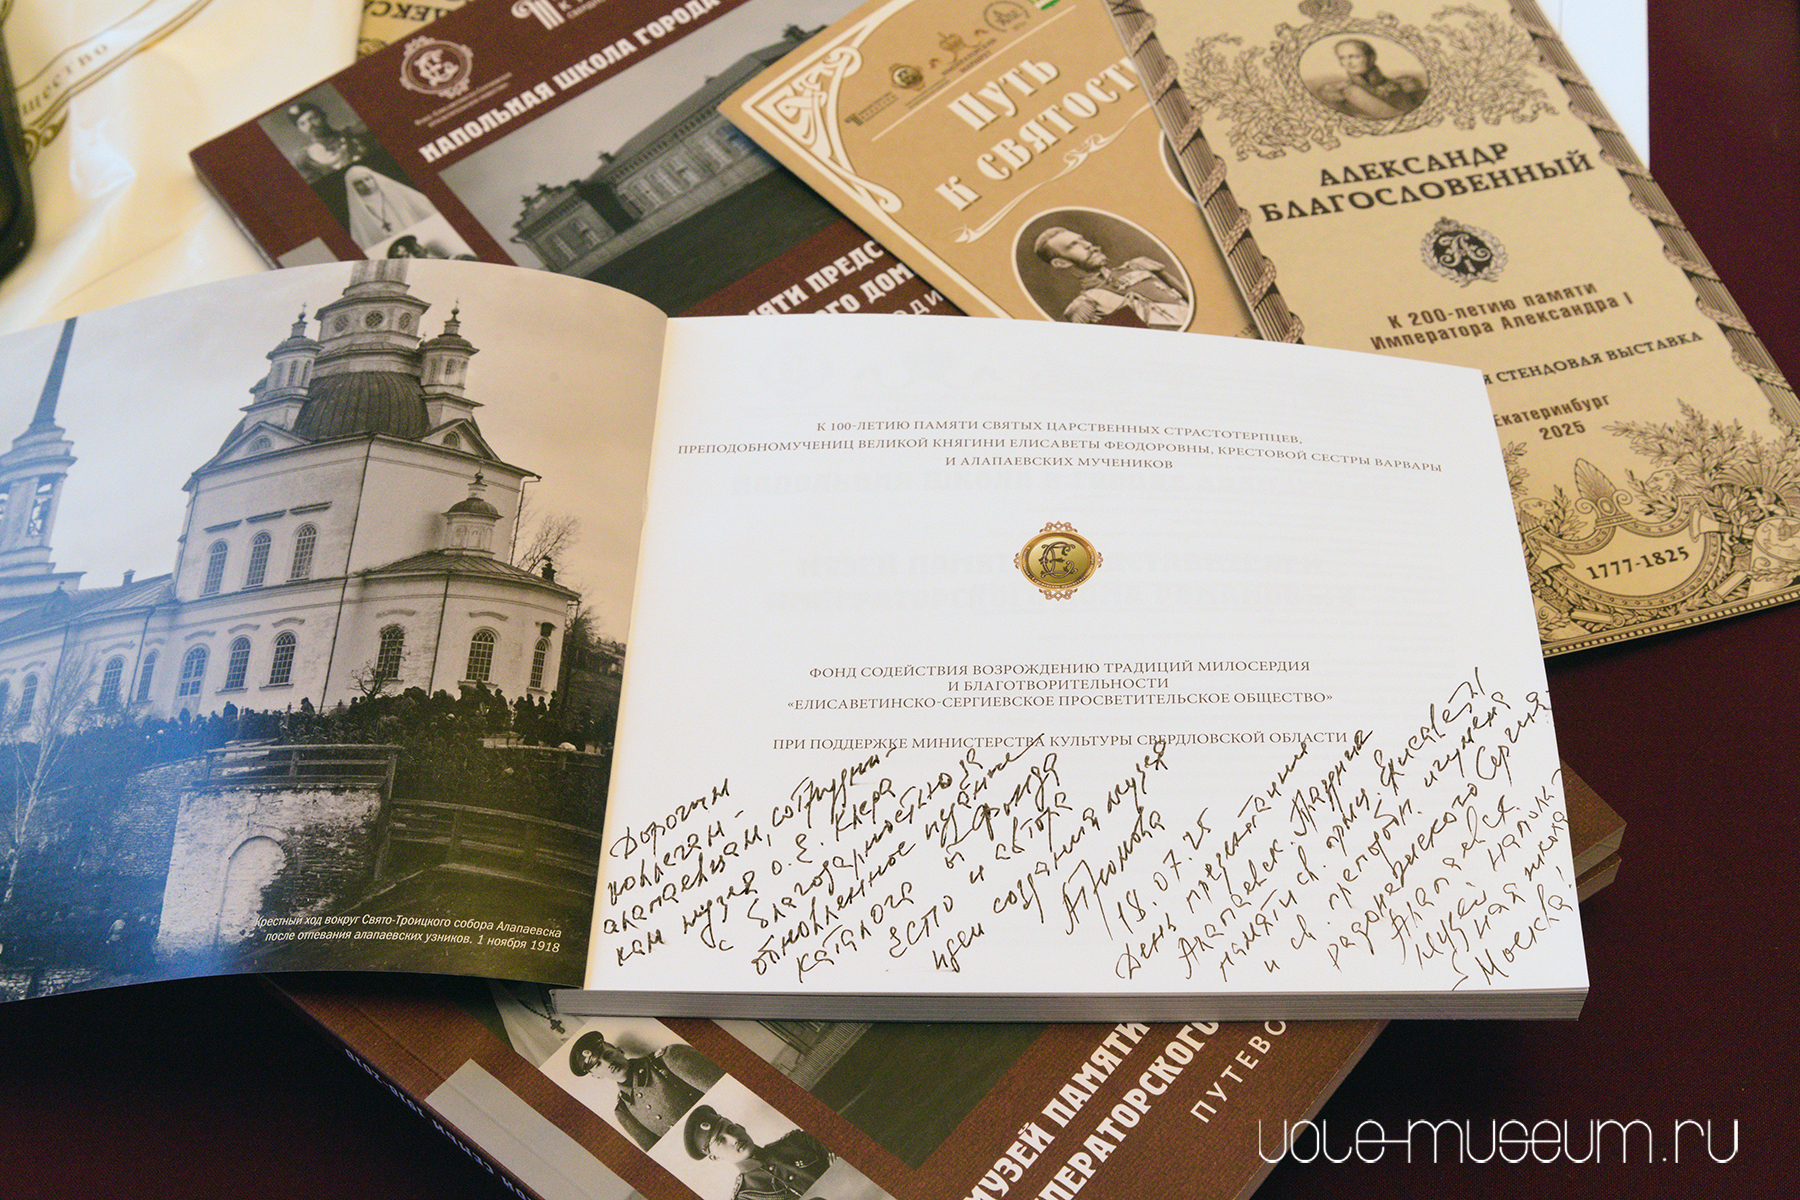 ЩЕСТВО
НАПОЛЬНАЯ ШКОЛА ГОРОДА
ПУТЬ
К СВЯТОСТИ
АЛЕКСАНДР
БЛАГОСЛОВЕННЫЙ
К 200-летию памяти
Императора Александра I
Я СТЕНДОВАЯ ВЫСТАВКА
Екатеринбург
2025
1777-1825
МЯТИ ПРЕДС
ОГО ДОМ
ОДИ
К 100-ЛЕТИЮ ПАМЯТИ СВЯТЫХ ЦАРСТВЕННЫХ СТРАСТОТЕРПЦЕВ,
ПРЕПОДОБНОМУЧЕНИЦ ВЕЛИКОЙ КНЯГИНИ ЕЛИСАВЕТЫ ФЕОДОРОВНЫ, КРЕСТОВОЙ СЕСТРЫ ВАРВАРЫ
И АЛАПАЕВСКИХ МУЧЕНИКОВ
ФОНД СОДЕЙСТВИЯ ВОЗРОЖДЕНИЮ ТРАДИЦИЙ МИЛОСЕРДИЯ
И БЛАГОТВОРИТЕЛЬНОСТИ
«ЕЛИСАВЕТИНСКО-СЕРГИЕВСКОЕ ПРОСВЕТИТЕЛЬСКОЕ ОБЩЕСТВО»
ПРИ ПОДДЕРЖКЕ МИНИСТЕРСТВА КУЛЬТУРЫ СВЕРДЛОВСКОЙ ОБЛАСТИ
Дорогим
коллегам-
алапаевцам, сотрудни-
кам музея О. Е. Клера
с благодарностью за
обновленное издание
каталога от Фонда
ЕСПО и автора
идеи создания музея
АГромова
18.07.25
День празднования
Алапаевск.
памяти св. прмц. Елисаветы
и св. преподобн. игумена
радонежского Сергия
Алапаевск
Музей Наполь-
ная школа
- Москва!
Крестный ход вокруг Свято-Троицкого собора Алапаевска
после отпевания алапаевских узников. 1 ноября 1918
МУЗЕЙ ПАМЯТИ
ПЕРАТОРСКОГО
ПУТЕВО
1918-2018
uole-museum.ru